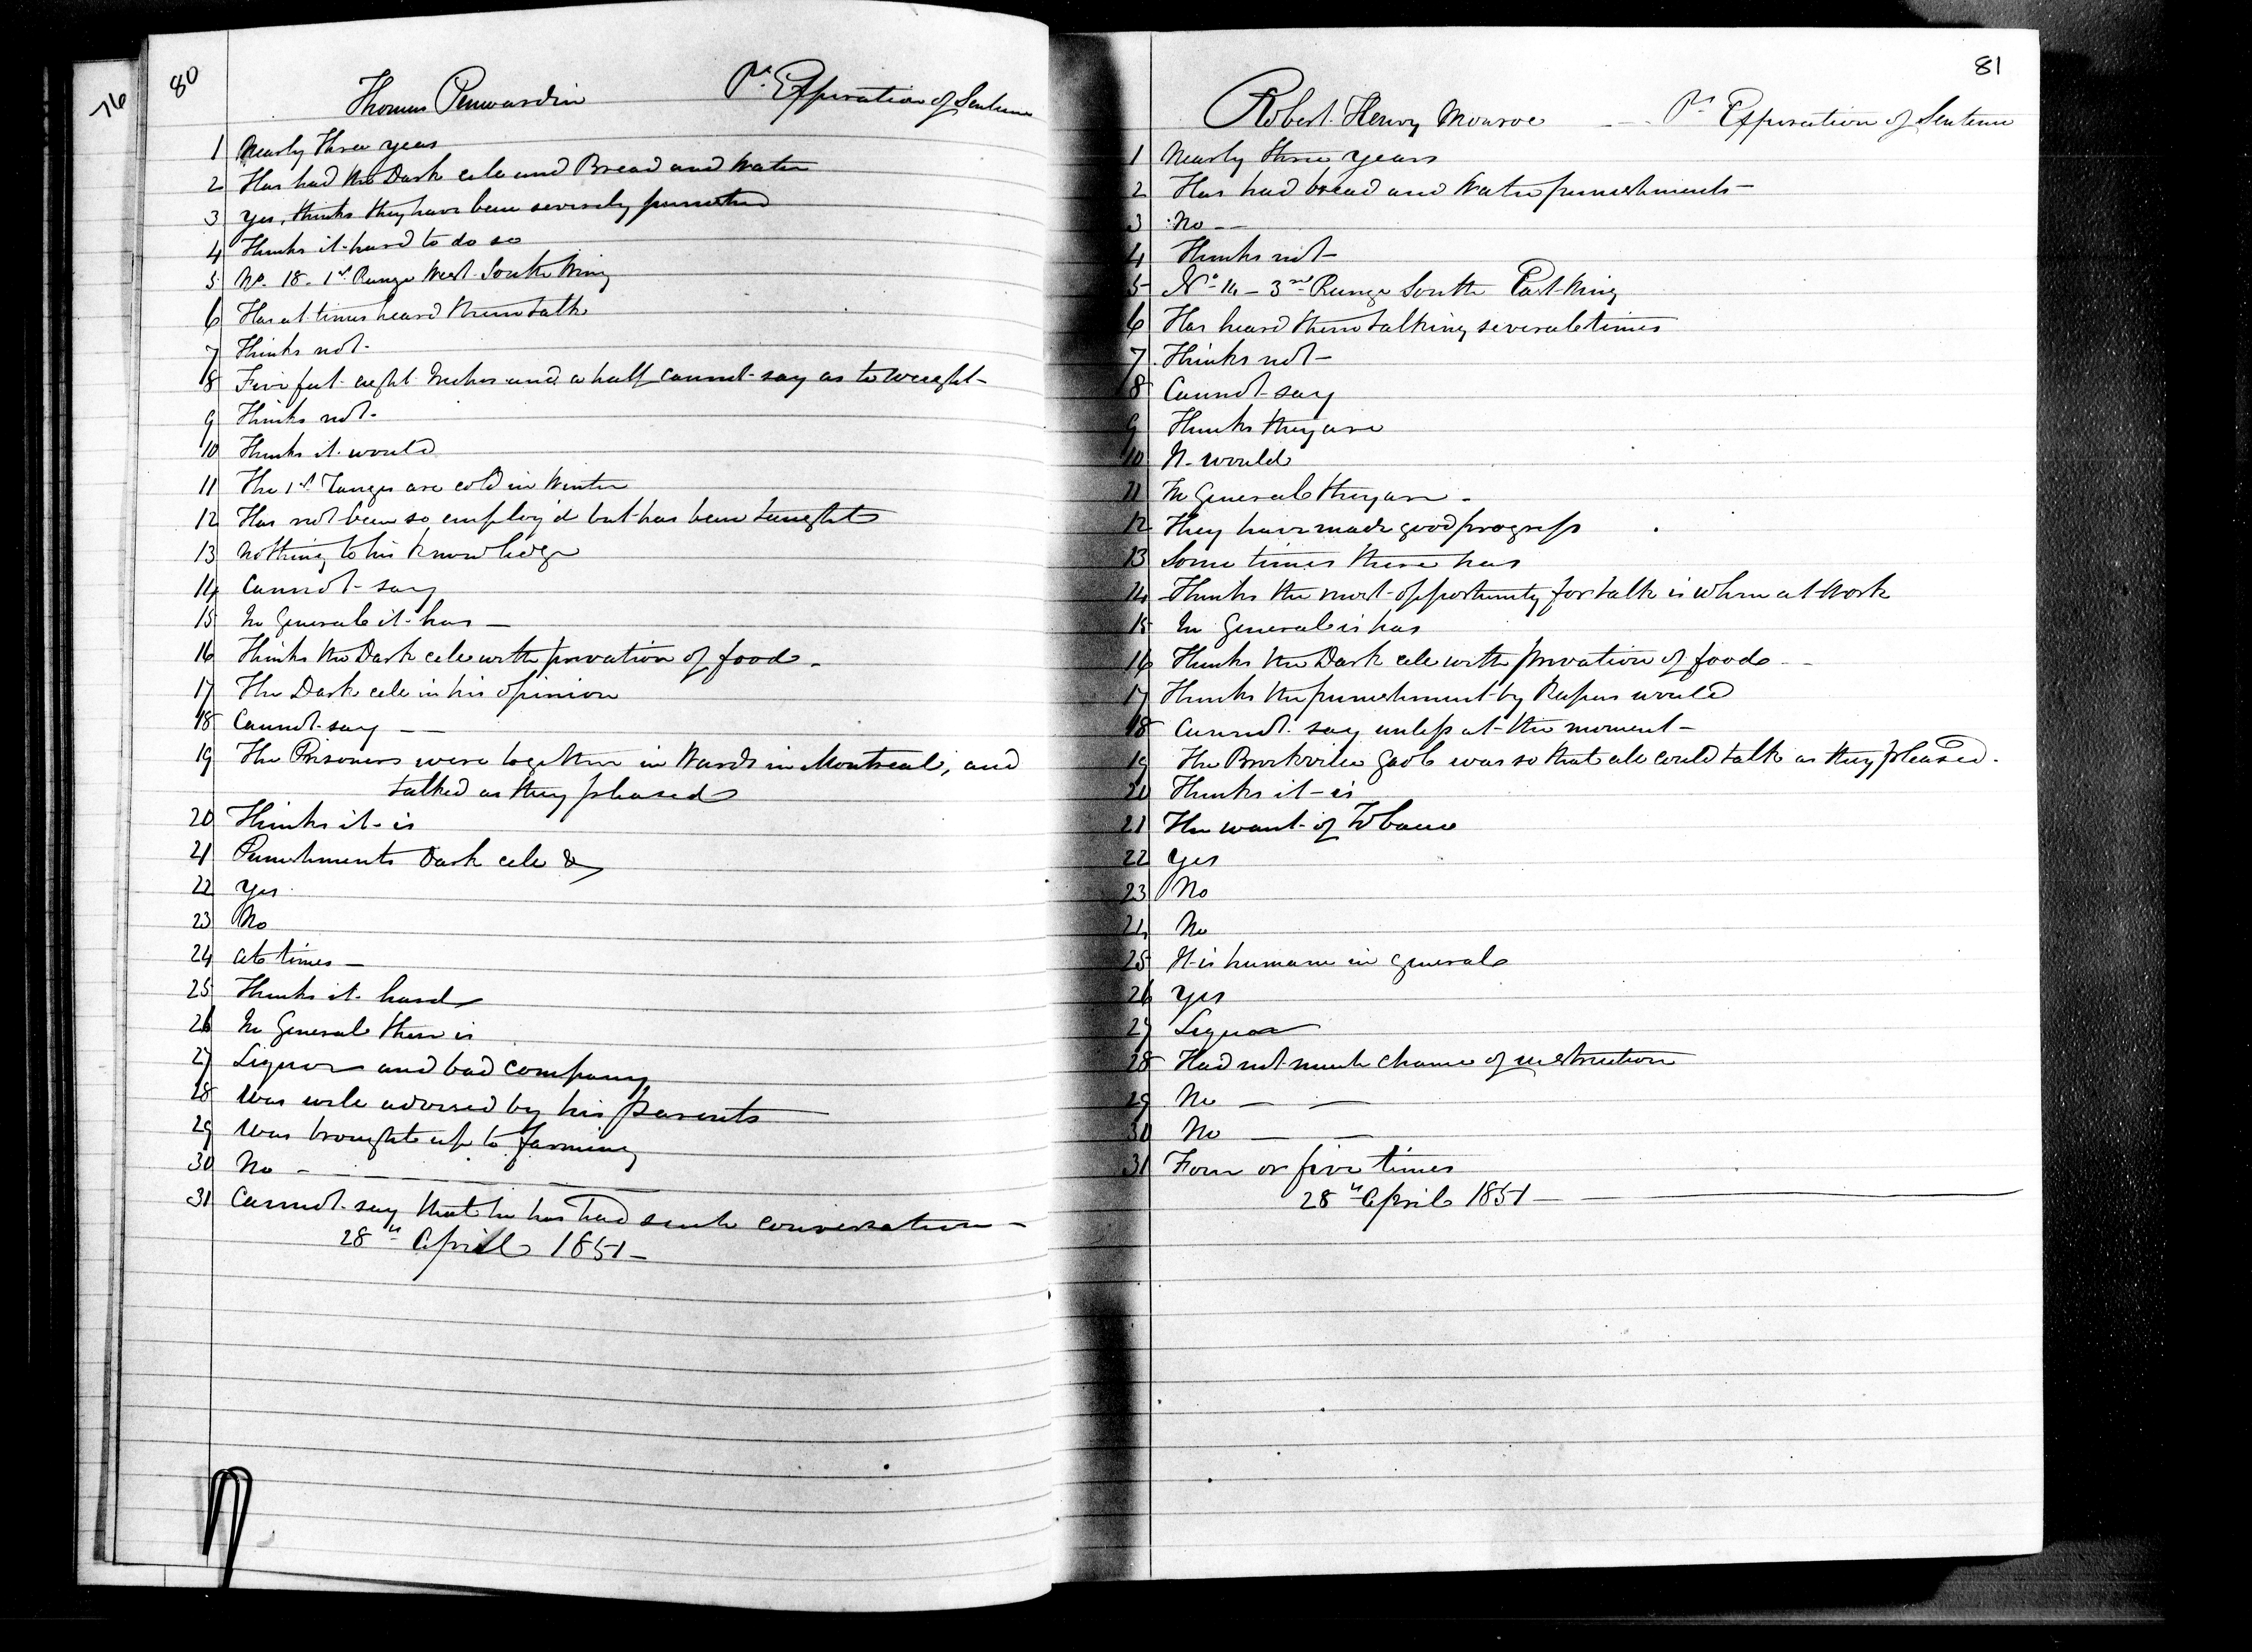 76
80
Thomas Penwardin Pr. Expiration of Sentence
1 Nearly three years
2 Has had the Dark cell and Bread and Water
3 Yes, thinks they have been severely punished
4 Thinks it hard to do so
5 No. 18 - 1st Range West South Wing
6 Has at times heard them talk
7 Thinks not-
8 Five feet eight Inches and a half cannot say as to weight-
9 Thinks not-
10 Thinks it would
11 The 1st Ranges are cold in Winter
12 Has not been so employ'd but has been taught
13 Nothing to his knowledge
14 Cannot-say
15 In General it has —
16 Thinks the Dark cell with privation of food -
17 The Dark cell in his opinion
18 Cannot say — —
19 The Prisoners were together in Wards in Montreal, and
talked as they pleased
20 Thinks it is
21 Punishments Dark cell &
22 Yes
23 No
24 at times —
25 Thinks it hard
26 In General there is
27 Liquor and bad company
28 Was well advised by his parents
29 Was brought up to farming
30 No -
31 Cannot say that he has had such conversation -
28th April 1851 -
81
Robert Henry Monroe - - Pr Expiration of Sentence
1 Nearly three years
2 Has had bread and Water punishments -
3 No - -
4 Thinks not -
5 No 14 - 3rd Range South East Wing
6 Has heard them talking several times
7 Thinks not -
8 Cannot say
9 Thinks they are
10 It would
11 In General they are -
12 They have made good progress
13 Some times there has
14 Thinks the most opportunity for talk is when at Work
15 In General is has
16 Thinks the Dark cell with privation of food - -
17 Thinks the punishment by Ropes would
18 Cannot say unless at the moment -
19 The Brockville Gaol was so that all could talk as they pleased.
20 Thinks it is
21 The want of Tobacco
22 Yes
23 No
24 No
25 It is humane in general
26 Yes
27 Liquor
28 Had not much chance of instruction
29 No — —
30 No — —
31 Four or five times
28th April 1851 — —